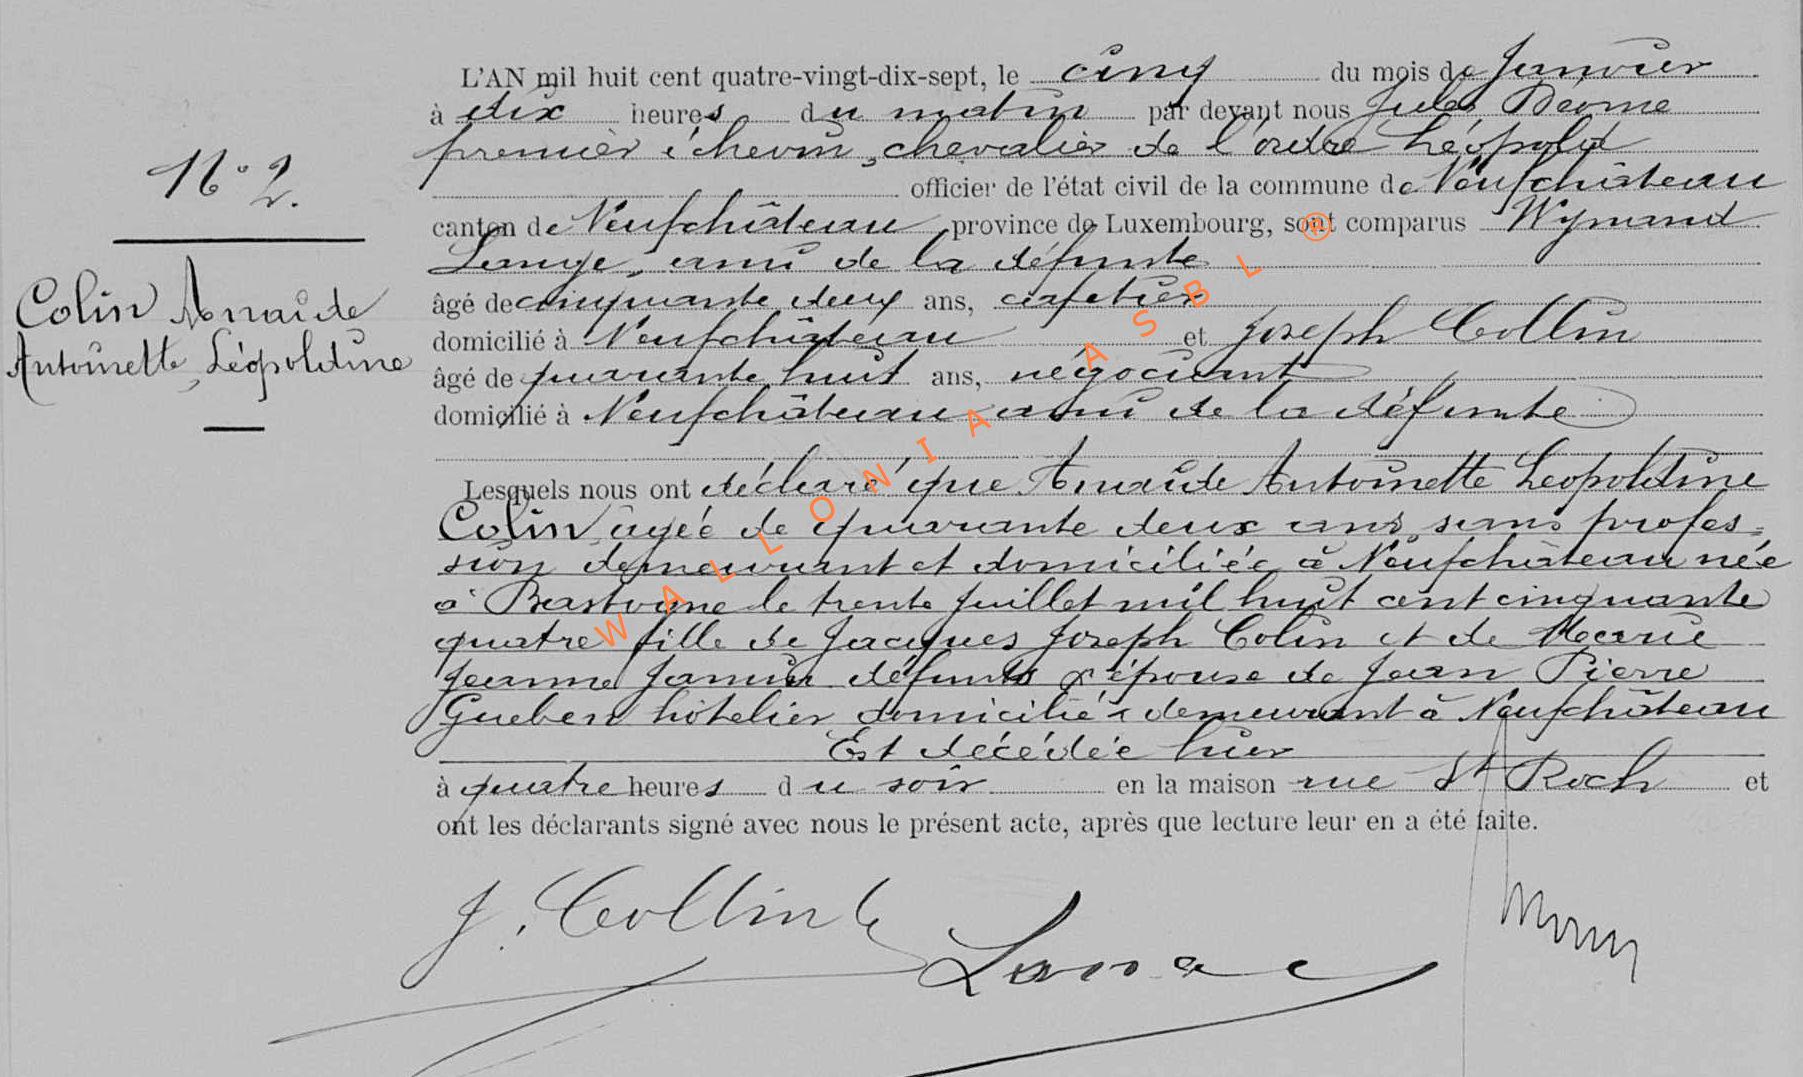 N° 2.
Colin Anaïde
Antoinette, Léopoldine
L'AN mil huit cent quatre-vingt-dix-sept, le cinq du mois de Janvier
à dix heures du matin par devant nous Jules
premier échevin, chevalier de l'ordre Léopold
officier de l'état civil de la commune de Neufchâteau
canton de Neufchâteau province de Luxembourg, sont comparus Wynand
Lange, ami de la défunte
âgé de cinquante deux ans, cafetier
domicilié à Neufchâteau et Joseph Collin
âgé de quarante huit ans, négociant
domicilié à Neufchâteau ami de la défunte
Lesquels nous ont déclaré que Anaïde Antoinette Leopoldine
Colin âgée de quarante deux ans, sans profes=
sion demeurant et domiciliée à Neufchâteau née
à Bastogne le trente Juillet mil huit cent cinquante
quatre fille de Jacques Joseph Colin et de Marie
Jeanne défunts & épouse de Jean Pierre
Gueben hôtelier domicilié & demeurant à Neufchâteau
Est décédée hier
à quatre heures du soir en la maison rue St Roch et
ont les déclarants signé avec nous le présent acte, après que lecture leur en a été faite.
J. Collin
Lange
WALLONIA ASBL ®